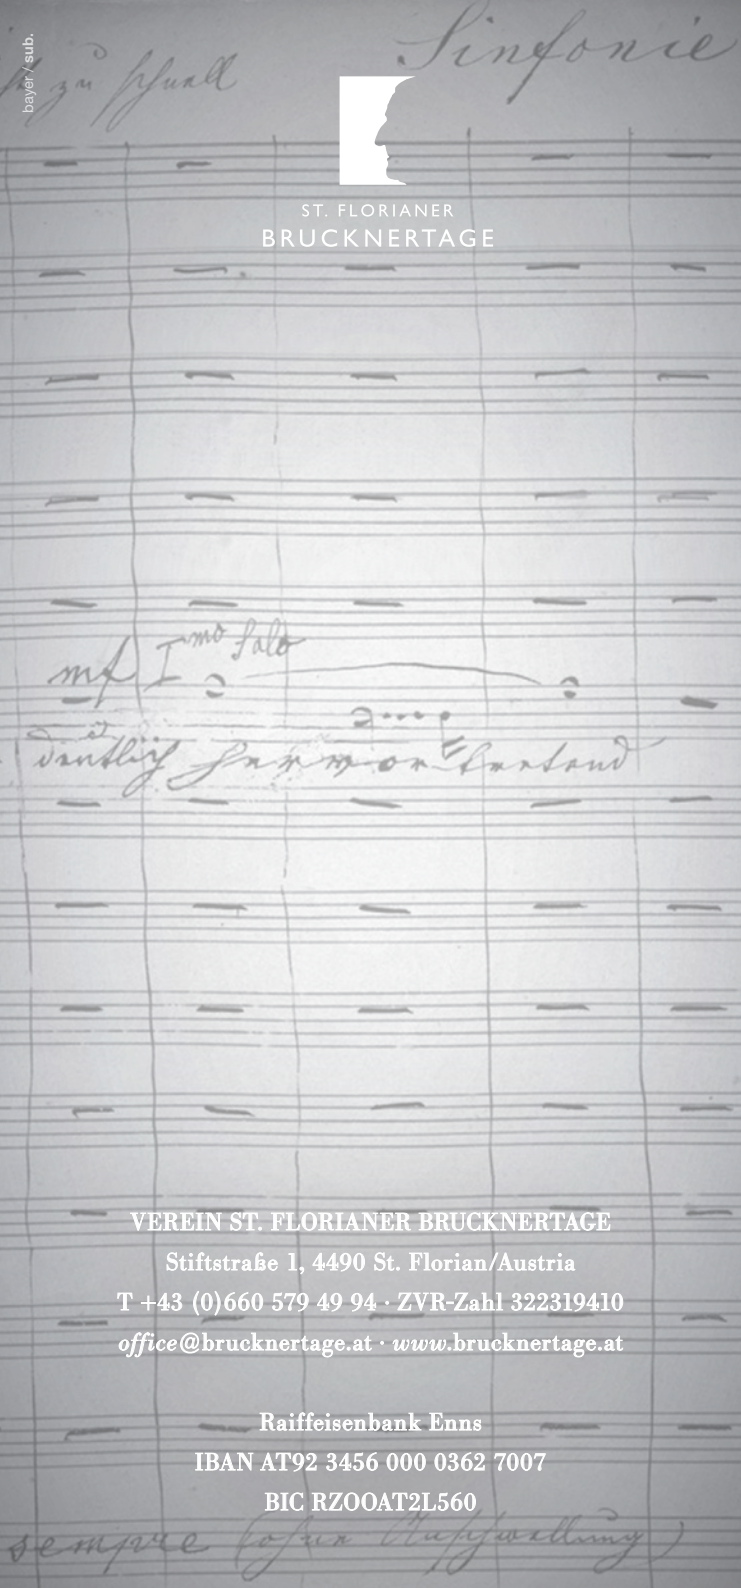 bayer / sub.
Sinfonie
zu schnell
ST. FLORIANER
BRUCKNERTAGE
mf I mo Solo
deutlich hervortretend
VEREIN ST. FLORIANER BRUCKNERTAGE
Stiftstraße 1, 4490 St. Florian/Austria
T +43 (0)660 579 49 94 · ZVR-Zahl 322319410
office@brucknertage.at · www.brucknertage.at
Raiffeisenbank Enns
IBAN AT92 3456 000 0362 7007
BIC RZOOAT2L560
sempre (ohne Anschwellung)